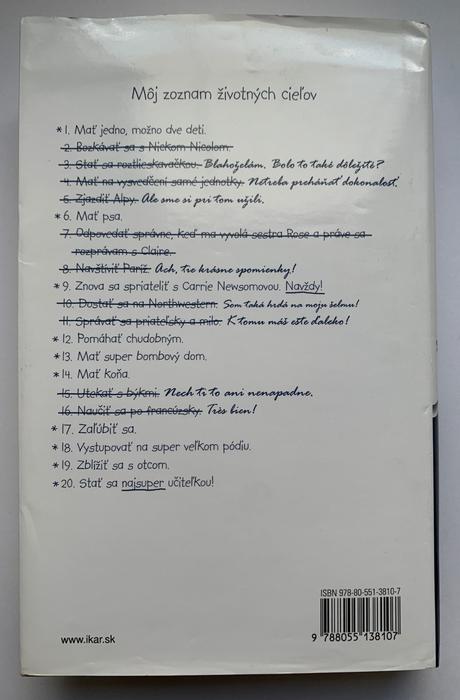 Môj zoznam životných cieľov
*1. Mať jedno, možno dve deti.
2. Bozkávať sa s Nickom Nicolom.
3. Stať sa roztlieskavačkou. Blahoželám. Bolo to také dôležité?
4. Mať na vysvedčení samé jednotky. Netreba preháňať dokonalosť.
5. Zjazdiť Alpy. Ale sme si pri tom užili.
*6. Mať psa.
7. Odpovedať správne, keď ma vyvolá sestra Rose a práve sa
rozprávam s Claire.
8. Navštíviť Paríž. Ach, tie krásne spomienky!
*9. Znova sa spriateliť s Carrie Newsomovou. Navždy!
10. Dostať sa na Northwestern. Som taká hrdá na moju šelmu!
11. Správať sa priateľsky a milo. K tomu máš ešte ďaleko!
*12. Pomáhať chudobným.
*13. Mať super bombový dom.
*14. Mať koňa.
15. Utekať s býkmi. Nech ti to ani nenapadne.
16. Naučiť sa po francúzsky. Très bien!
*17. Zaľúbiť sa.
*18. Vystupovať na super veľkom pódiu.
*19. Zblížiť sa s otcom.
*20. Stať sa najsuper učiteľkou!
ISBN 978-80-551-3810-7
9 788055 138107
www.ikar.sk